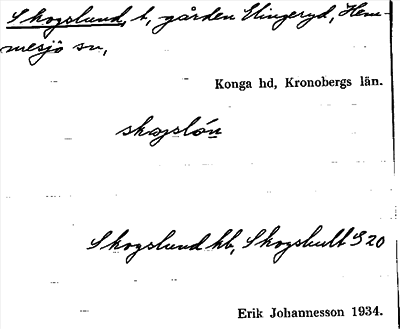 Skogslund, t, gården Elingeryd, Hem-
mesjö sn,
Konga hd, Kronobergs län.
skogslón
Skogslund hb, Skogshult S 20
Erik Johannesson 1934.